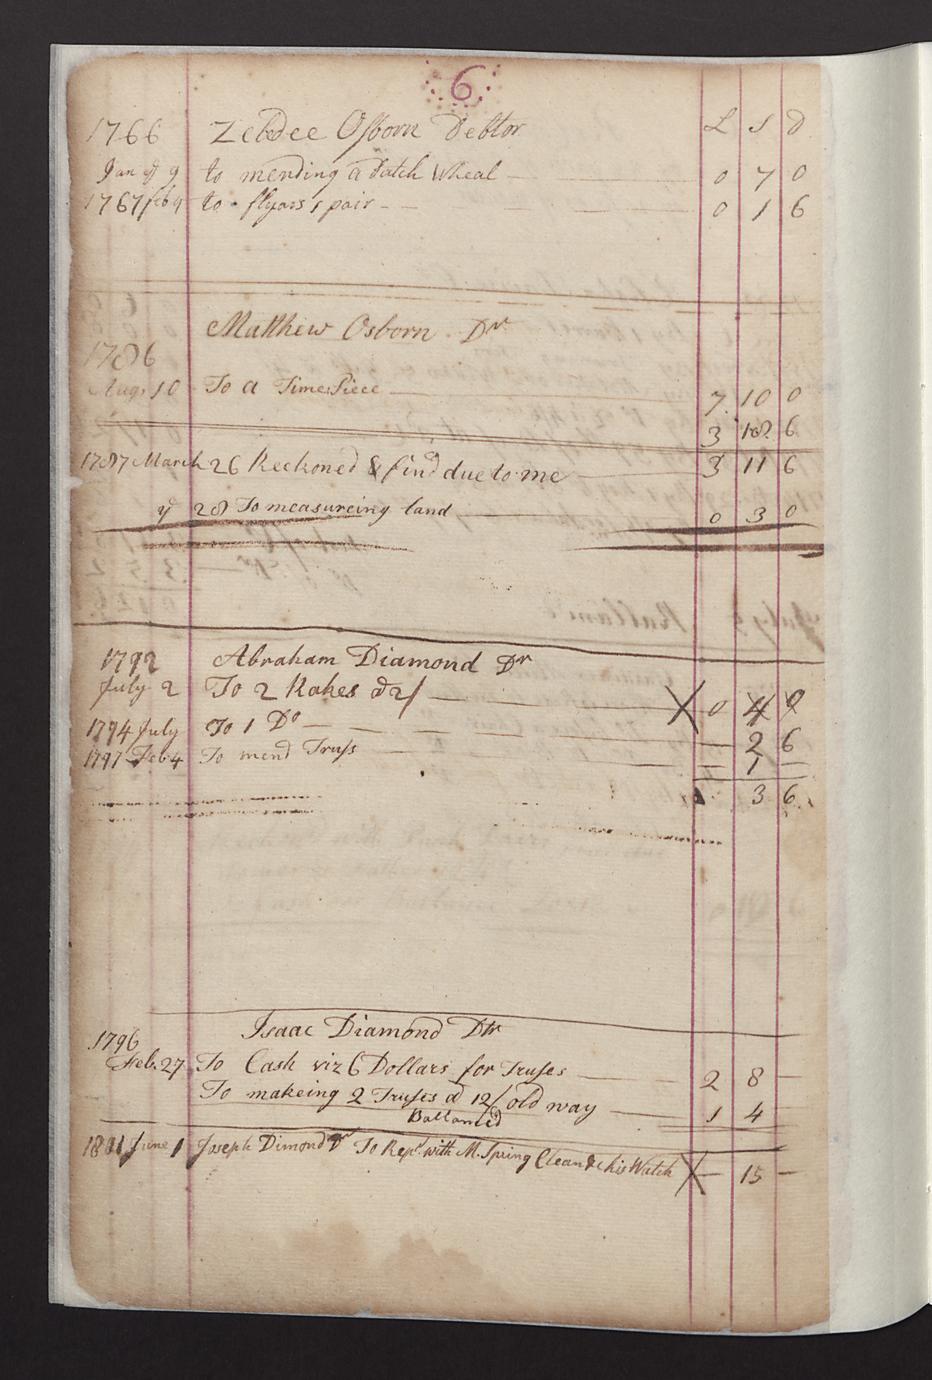 6
1766 Zebdee Osborn Debtor L S D
Jan ye 9 to mending a Dutch Wheal 0 7 0
1767 feb 9 to flyars spair 0 1 6
Matthew Osborn Dr
1786
Aug. 10 To a Time Piece 7 10 0
3 18 6
1787 March 26 Reckoned & find due to me 3 11 6
ye 28 To measureing land 0 3 0
1792 Abraham Diamond Dr
July 2 To 2 Rakes @ 2/ 0 4 0
1794 July To 1 Do 2 6
1797 Feb 4 To mend Truss 1
3 6
Isaac Diamond Dtr
1796
Feb. 27 To Cash viz 6 Dollars for Truses 2 8
To makeing 2 Truses @ 12/ old way 1 4
Ballanced
1801 June 1 Joseph Dimond Dr To Repr. with M. Spring Clean & his Watch 15